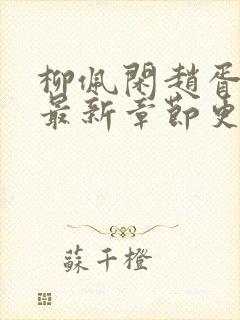 柳佩閑趙胥
最新章節更
蘇千橙